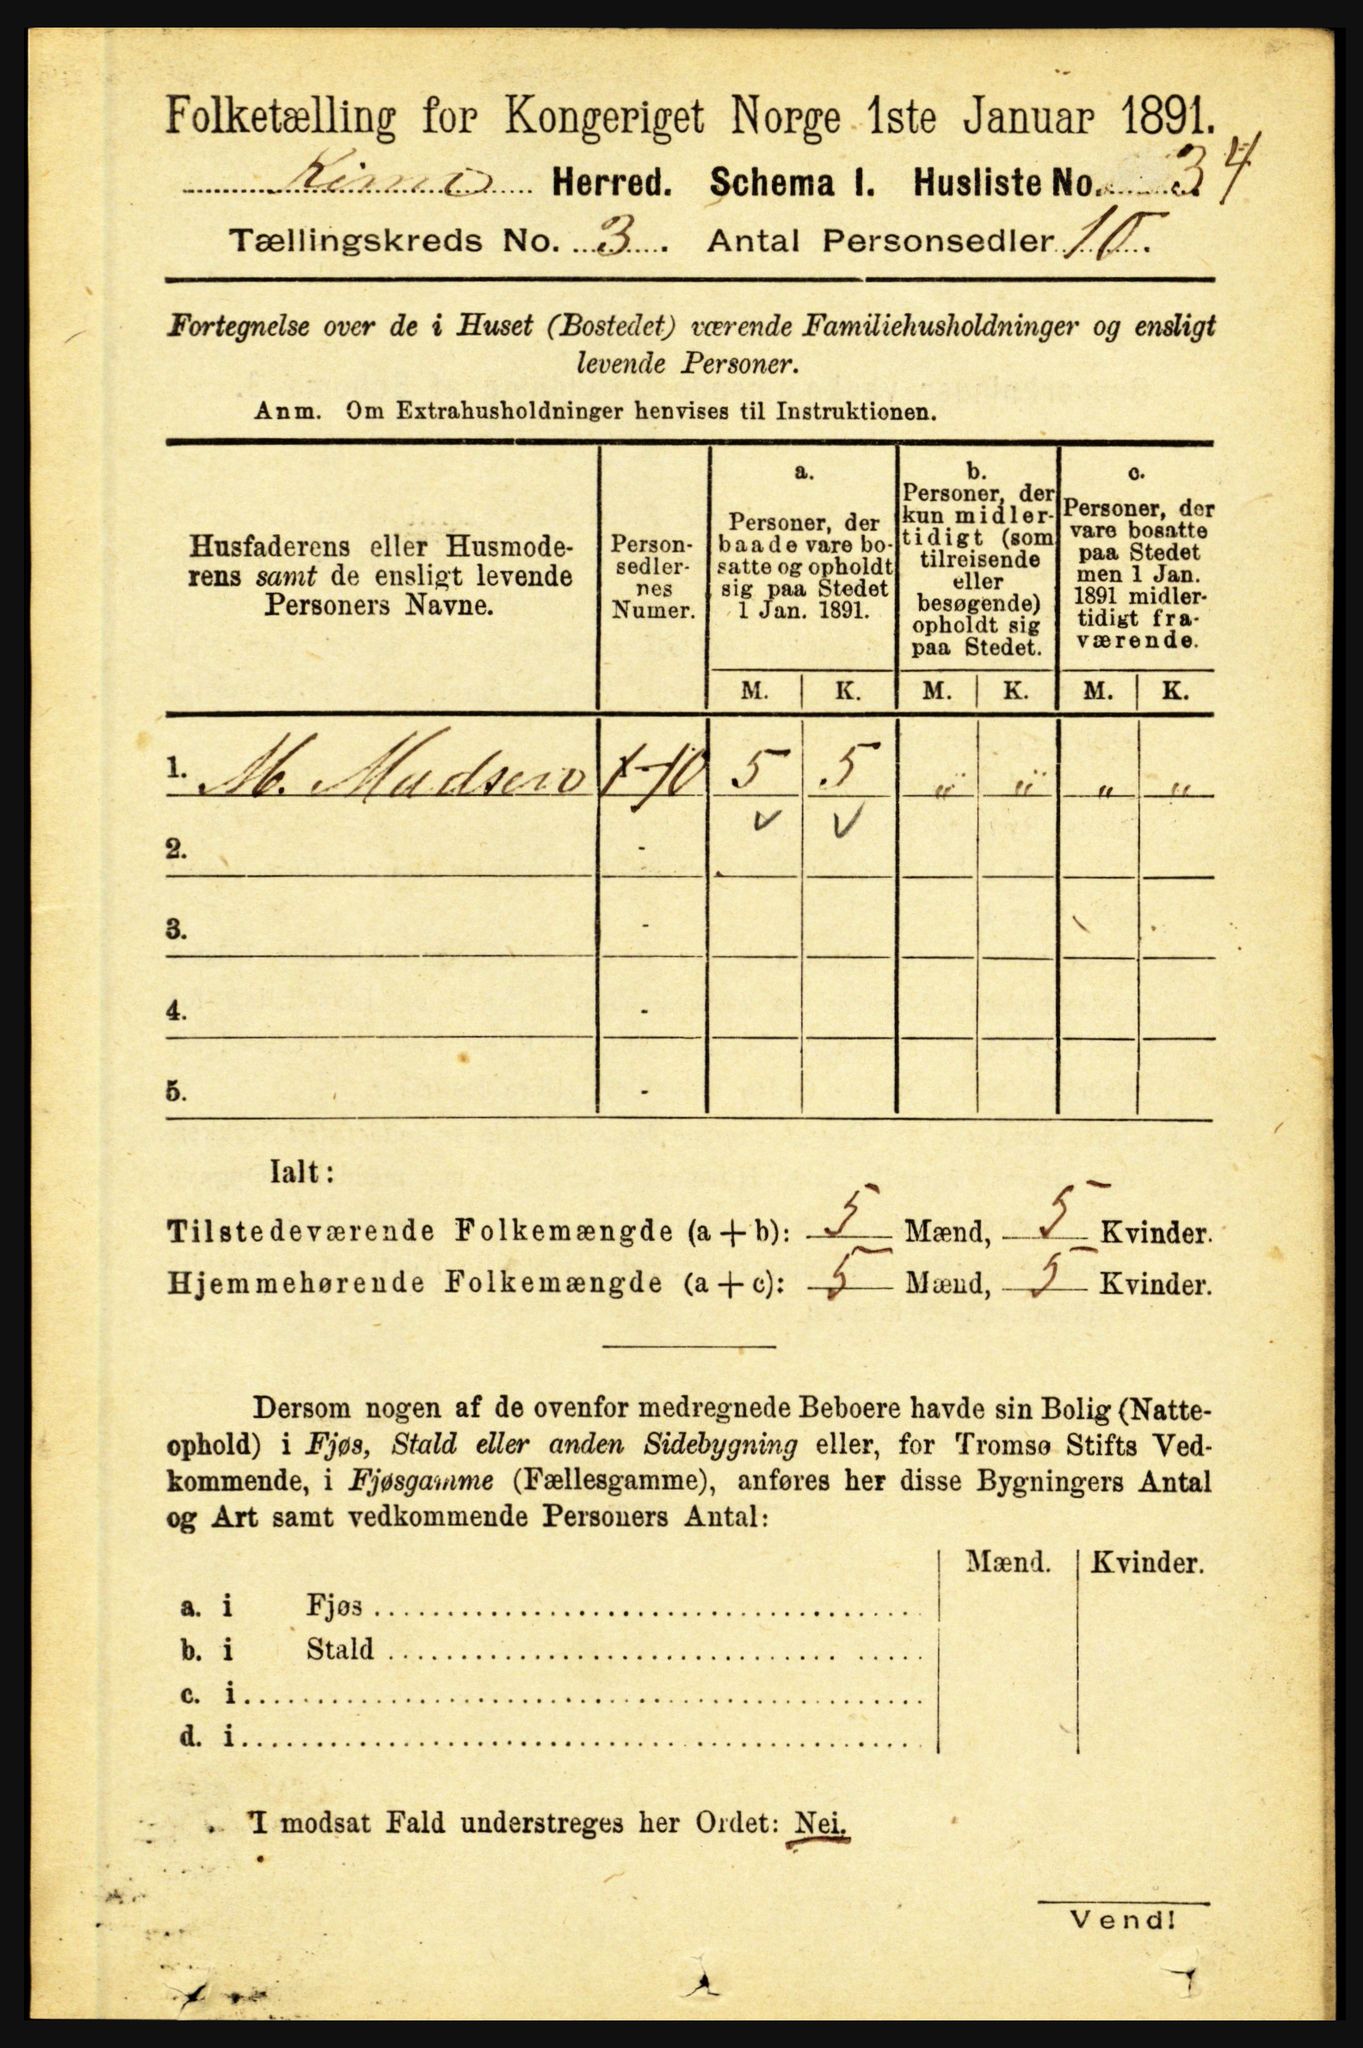 Folketælling for Kongeriget Norge 1ste Januar 1891.
Kinn Herred. Schema I. Husliste No. 34
Tællingskreds No. 3. Antal Personsedler 10.
Fortegnelse over de i Huset (Bostedet) værende Familiehusholdninger og ensligt
levende Personer.
Anm. Om Extrahusholdninger henvises til Instruktionen.
Husfaderens eller Husmode-
rens samt de ensligt levende
Personers Navne.
Person-
sedler-
nes
Numer.
a.
Personer, der
baade vare bo-
satte og opholdt
sig paa Stedet
1 Jan. 1891.
b.
Personer, der
kun midler-
tidigt (som
tilreisende
eller
besøgende)
opholdt sig
paa Stedet.
c.
Personer, der
vare bosatte
paa Stedet
men 1 Jan.
1891 midler-
tidigt fra-
værende.
M. K. M. K. M. K.
1. M. Madsen 1-10 5 5 „ „ „ „
2. -
3. -
4. -
5. -
Ialt:
Tilstedeværende Folkemængde (a + b): 5 Mænd, 5 Kvinder.
Hjemmehørende Folkemængde (a + c): 5 Mænd, 5 Kvinder.
Dersom nogen af de ovenfor medregnede Beboere havde sin Bolig (Natte-
ophold) i Fjøs, Stald eller anden Sidebygning eller, for Tromsø Stifts Ved-
kommende, i Fjøsgamme (Fællesgamme), anføres her disse Bygningers Antal
og Art samt vedkommende Personers Antal:
Mænd. Kvinder.
a. i Fjøs
b. i Stald
c. i
d. i
I modsat Fald understreges her Ordet: Nei.
Vend!